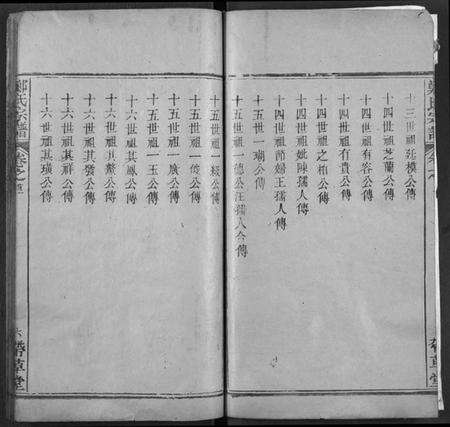 十三世祖 模公傳
十四世祖芝蘭公傳
十四世祖有容公傳
十四世祖有貴公傳
十四世祖之柏公傳
十四世祖妣陳孺人傳
十四世祖節婦王孺人傳
十五世祖一瑚公傳
十五世祖一德公汪孺人合傳
十五世祖一 公傳
十五世祖一 公傳
十五世祖一 公傳
十五世祖一玉公傳
十六世祖其鳳公傳
十六世祖其 公傳
十六世祖其發公傳
十六世祖其祥公傳
十六世祖其璜公傳
鄭氏宗譜
卷之
六
帶草堂
鄭氏宗譜
卷之
帶草堂